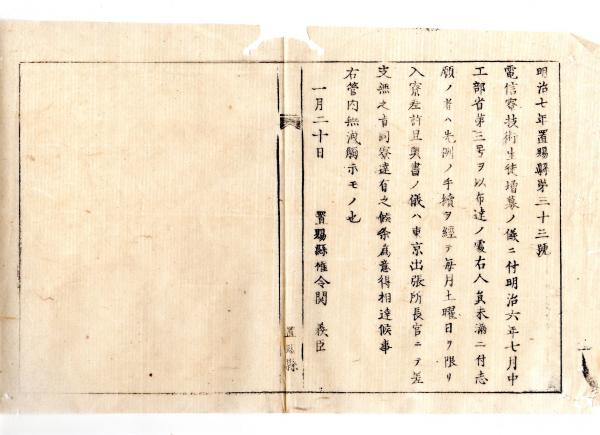 明治七年置賜縣第三十三號
電信寮技術生徒増募ノ儀ニ付明治六年七月中
工部省第三号ヲ以布達ノ處右人員未満ニ付志
願ノ者ハ先測ノ手續ヲ經テ毎月土曜日ヲ限リ
入寮差許且奥書ノ儀ハ東京出張所長官ニテ差
支無之旨同寮達有之候条為意得相達候事
右管内無洩觸示モノ也
一月二十日
置賜縣権令関 義臣
置賜縣